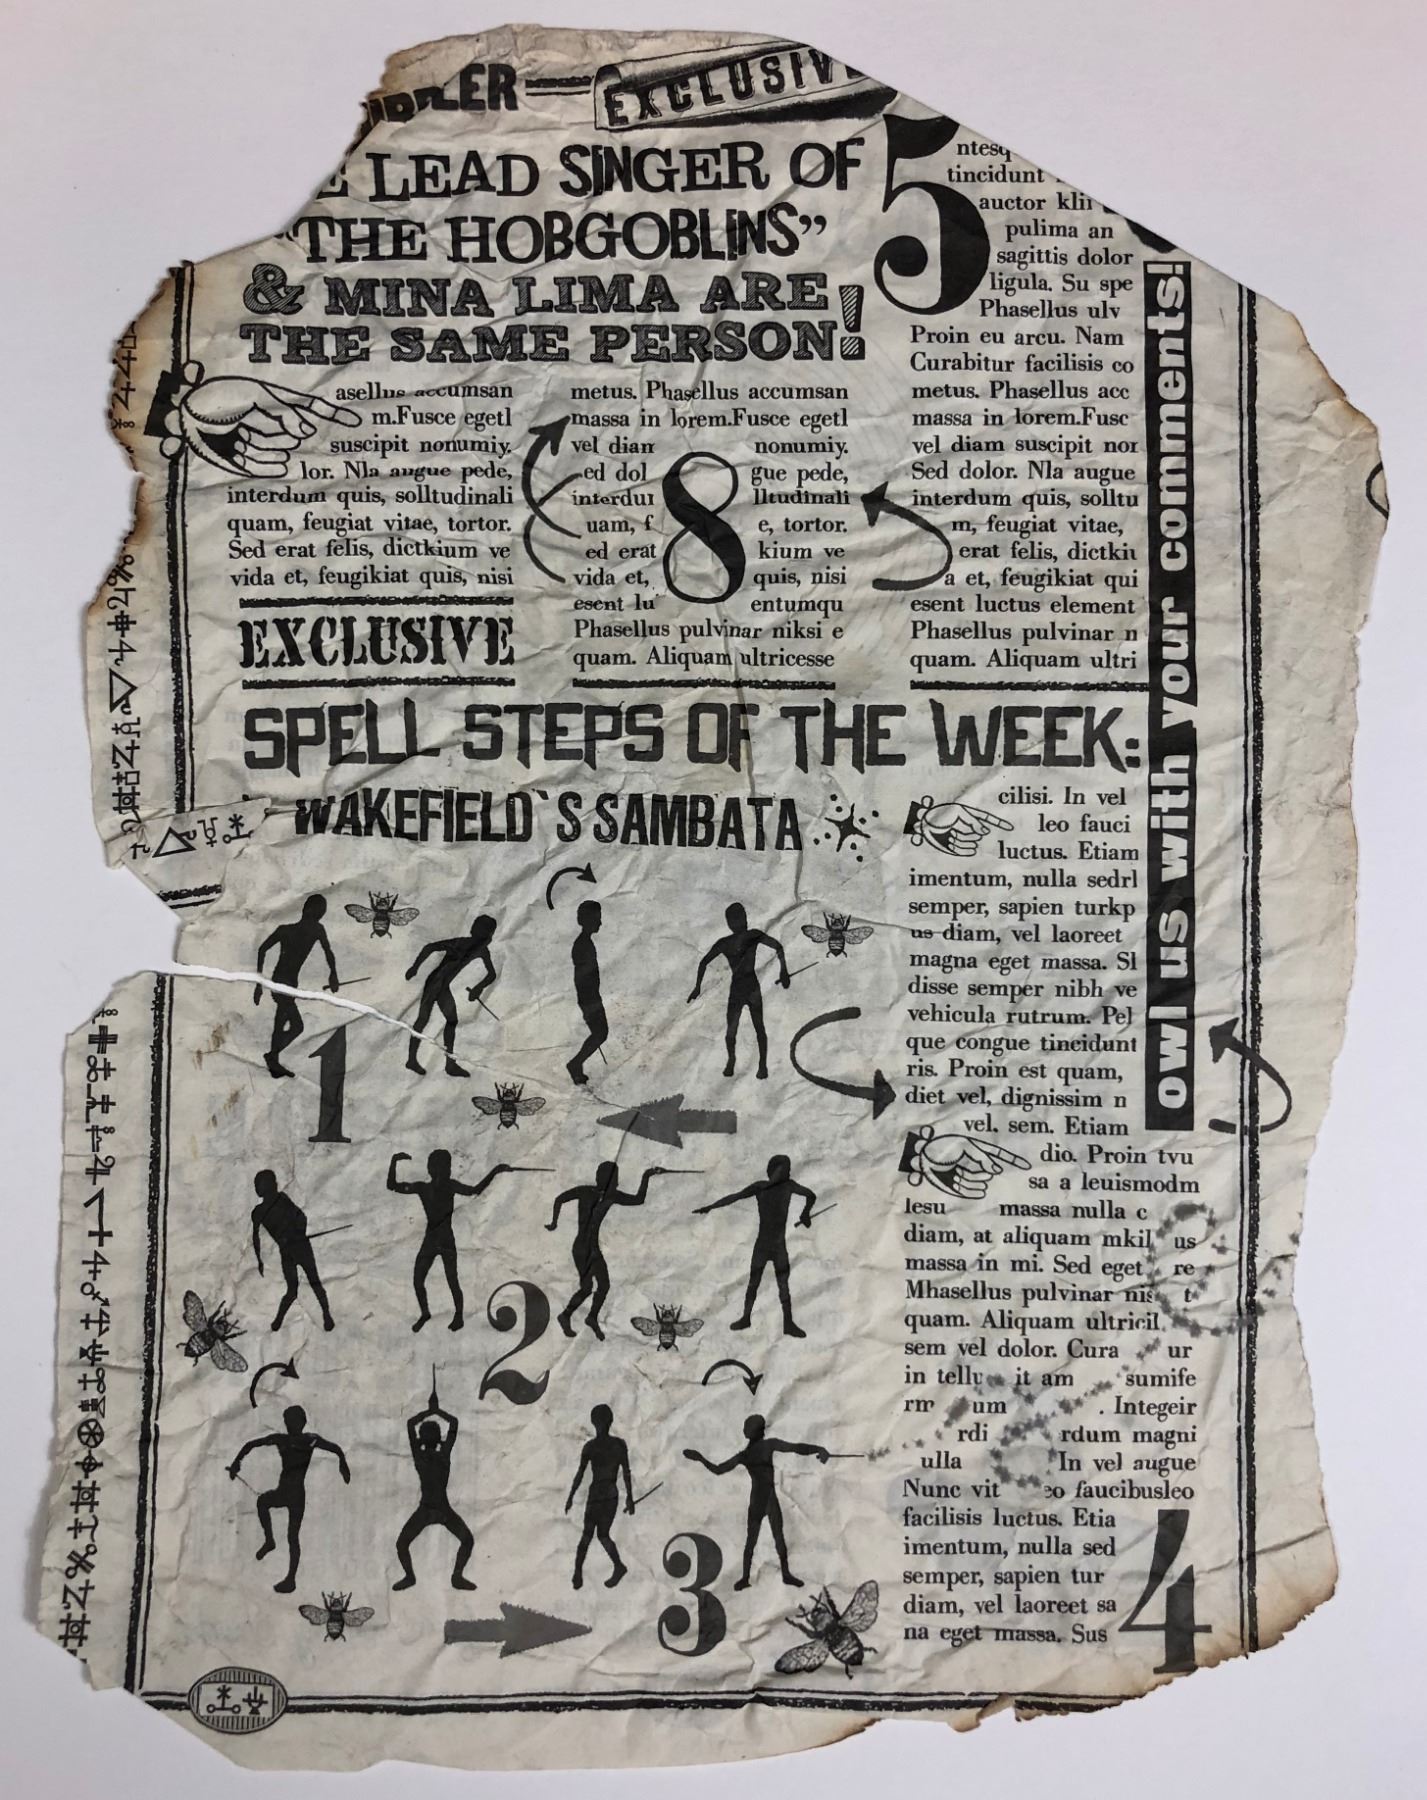 EXCLUSIVE
LEAD SINGER OF
“THE HOBGOBLINS”
& MINA LIMA ARE
THE SAME PERSON!
asellus accumsan
m.Fusce egetl
suscipit nonumiy.
lor. Nla augue pede,
interdum quis, solltudinali
quam, feugiat vitae, tortor.
Sed erat felis, dictkium ve
vida et, feugikiat quis, nisi
EXCLUSIVE
metus. Phasellus accumsan
massa in lorem.Fusce egetl
vel dian nonumiy.
ed dol gue pede,
interdu lltudinali
uam, f e, tortor.
ed erat kium ve
vida et, quis, nisi
esent lu entumqu
Phasellus pulvinar niksi e
quam. Aliquam ultricesse
8
5
tincidunt
auctor klii
pulima an
sagittis dolor
ligula. Su spe
Phasellus ulv
Proin eu arcu. Nam
Curabitur facilisis co
metus. Phasellus acc
massa in lorem.Fusc
vel diam suscipit nor
Sed dolor. Nla augue
interdum quis, solltu
m, feugiat vitae,
erat felis, dictkiu
a et, feugikiat qui
esent luctus element
Phasellus pulvinar n
quam. Aliquam ultri
owl us with your comments!
SPELL STEPS OF THE WEEK:
WAKEFIELD`S SAMBATA
1
2
3
cilisi. In vel
leo fauci
luctus. Etiam
imentum, nulla sedrl
semper, sapien turkp
us diam, vel laoreet
magna eget massa. Sl
disse semper nibh ve
vehicula rutrum. Pel
que congue tincidunt
ris. Proin est quam,
diet vel, dignissim n
vel. sem. Etiam
dio. Proin tvu
sa a leuismodm
lesu massa nulla c
diam, at aliquam mkil us
massa in mi. Sed eget re
Mhasellus pulvinar nis t
quam. Aliquam ultricil
sem vel dolor. Cura ur
in tellu it am sumife
rm um . Integeir
rdi rdum magni
ulla In vel augue
Nunc vit eo faucibusleo
facilisis luctus. Etia
imentum, nulla sed
semper, sapien tur
diam, vel laoreet sa
na eget massa. Sus
4